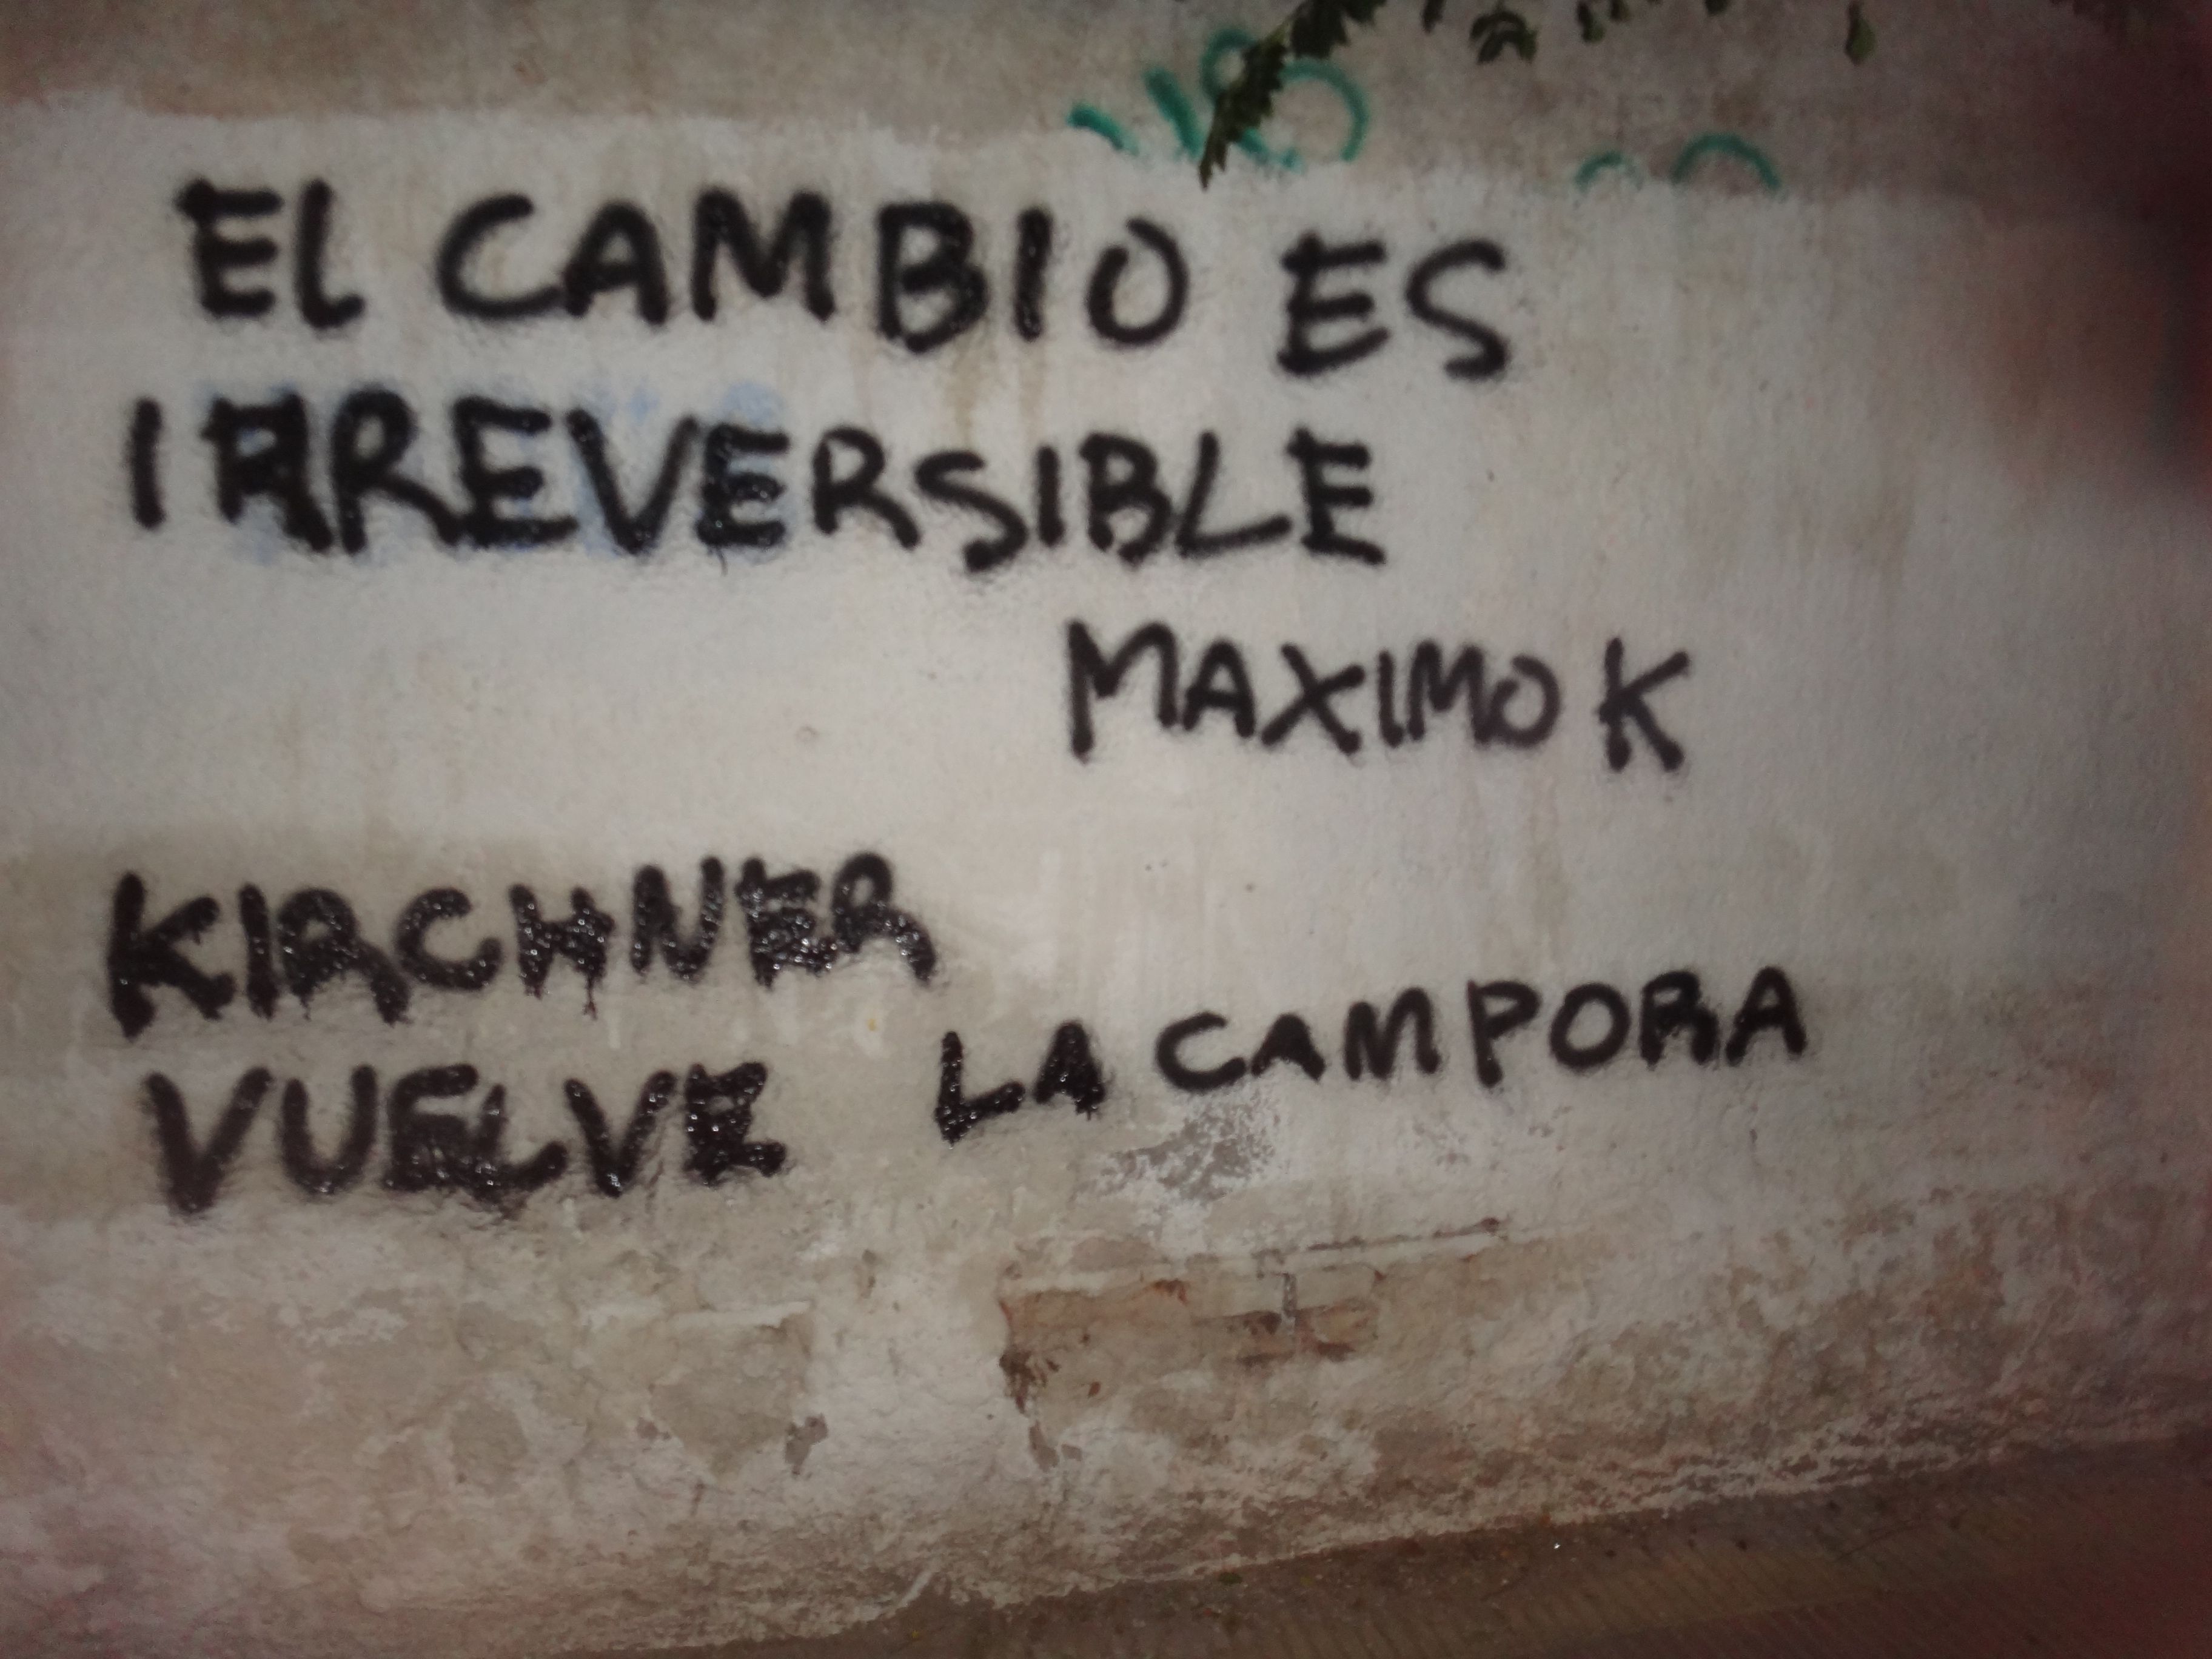 EL CAMBIO ES
IRREVERSIBLE
MAXIMO K
KIRCHNER
VUELVE LA CAMPORA